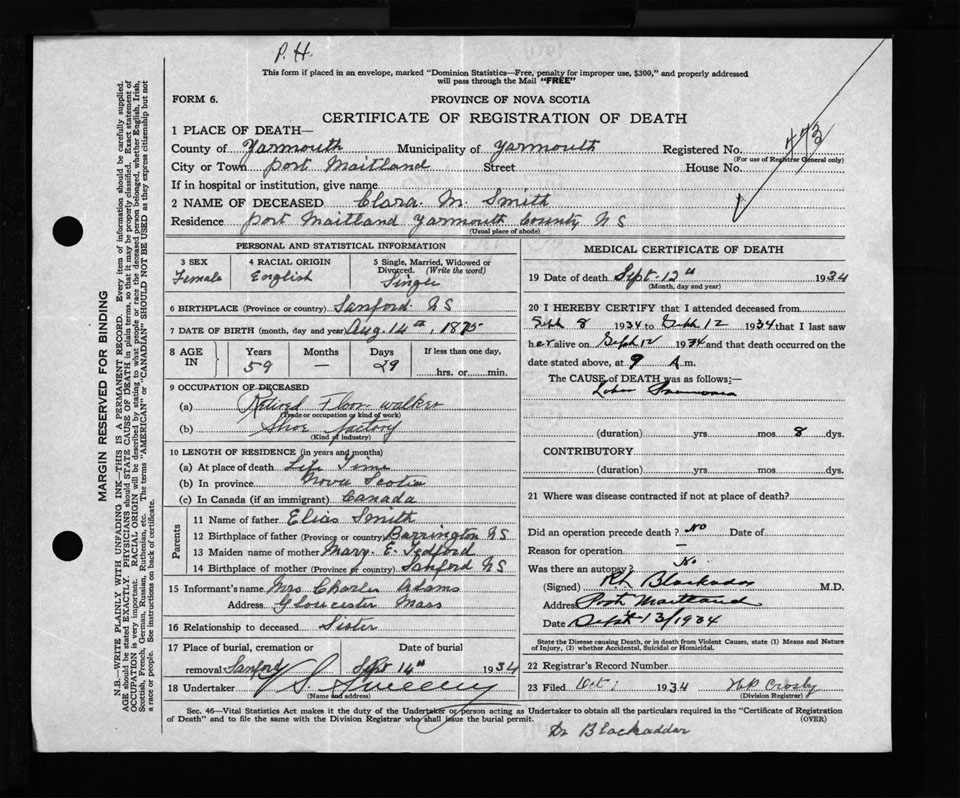 P. H.
This form if placed in an envelope, marked "Dominion Statistics—Free, penalty for improper use, $300," and properly addressed
will pass through the Mail "FREE"
FORM 6.
PROVINCE OF NOVA SCOTIA
CERTIFICATE OF REGISTRATION OF DEATH
473
1 PLACE OF DEATH—
County of Yarmouth Municipality of Yarmouth Registered No.
(For use of Registrar General only)
City or Town Port Maitland Street House No.
If in hospital or institution, give name
2 NAME OF DECEASED Clara. M. Smith
Residence Port Maitland Yarmouth County N S
(Usual place of abode)
PERSONAL AND STATISTICAL INFORMATION
3 SEX 4 RACIAL ORIGIN 5 Single, Married, Widowed or
Divorced. (Write the word)
Female English Single
6 BIRTHPLACE (Province or country) Sanford N S
7 DATE OF BIRTH (month, day and year) Aug. 14th, 1875
8 AGE IN Years Months Days If less than one day,
59 — 29 hrs. or min.
9 OCCUPATION OF DECEASED
(a) Retired Floor walker
(Trade or occupation or kind of work)
(b) Shoe factory
(Kind of industry)
10 LENGTH OF RESIDENCE (in years and months)
(a) At place of death Life Time
(b) In province Nova Scotia
(c) In Canada (if an immigrant) Canada
Parents
11 Name of father Elias Smith
12 Birthplace of father (Province or country) Barrington N S
13 Maiden name of mother Mary. E. Tedford
14 Birthplace of mother (Province or country) Sanford N S
15 Informant's name Mrs Charles Adams
Address Gloucester Mass
16 Relationship to deceased Sister
17 Place of burial, cremation or Date of burial
removal Sanford Sept 14th 1934
18 Undertaker V. S. Sweeny
(Name and address)
MEDICAL CERTIFICATE OF DEATH
19 Date of death Sept. 12th 1934
(Month, day and year)
20 I HEREBY CERTIFY that I attended deceased from
Sept 8 1934 to Sept 12 1934 that I last saw
her alive on Sept 12 1934 and that death occurred on the
date stated above, at 9 A.m.
The CAUSE OF DEATH was as follows;—
Lobar Pneumonia
(duration) yrs mos 8 dys.
CONTRIBUTORY
(duration) yrs mos dys.
21 Where was disease contracted if not at place of death?
Did an operation precede death? No Date of
Reason for operation —
Was there an autopsy? No.
(Signed) Blackadar M.D.
Address Port Maitland
Date Sept 13/1934
State the Disease causing Death, or in death from Violent Causes, state (1) Means and Nature
of Injury, (2) whether Accidental, Suicidal or Homicidal.
22 Registrar's Record Number
23 Filed Oct 1 1934 Crosby
(Division Registrar)
Sec. 46—Vital Statistics Act makes it the duty of the Undertaker or person acting as Undertaker to obtain all the particulars required in the "Certificate of Registration
of Death" and to file the same with the Division Registrar who shall issue the burial permit. (OVER)
Dr Blackadder
MARGIN RESERVED FOR BINDING
N.B.—WRITE PLAINLY WITH UNFADING INK—THIS IS A PERMANENT RECORD. Every item of information should be carefully supplied.
AGE should be stated EXACTLY. PHYSICIANS should STATE CAUSE OF DEATH in plain terms, so that it may be properly classified. Exact statement of
OCCUPATION is very important. RACIAL ORIGIN will be described by stating to what people or race the deceased person belonged, whether English, Irish,
Scottish, French, German, Russian, Ruthenian, etc. The terms "AMERICAN" or "CANADIAN" SHOULD NOT BE USED as they express citizenship but not
a race or people. See instructions on back of certificate.